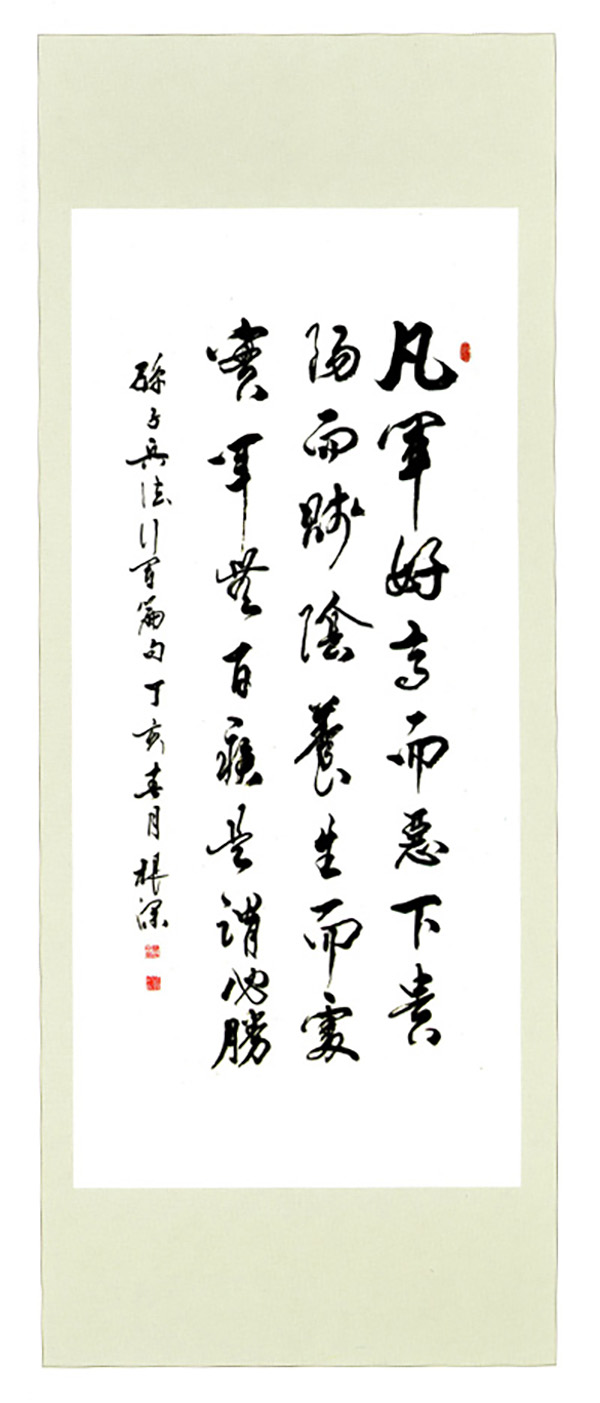 凡軍好高而惡下貴
陽而賤陰養生而處
實軍無百疾是謂必勝
孫子兵法行軍篇句丁亥春月根深